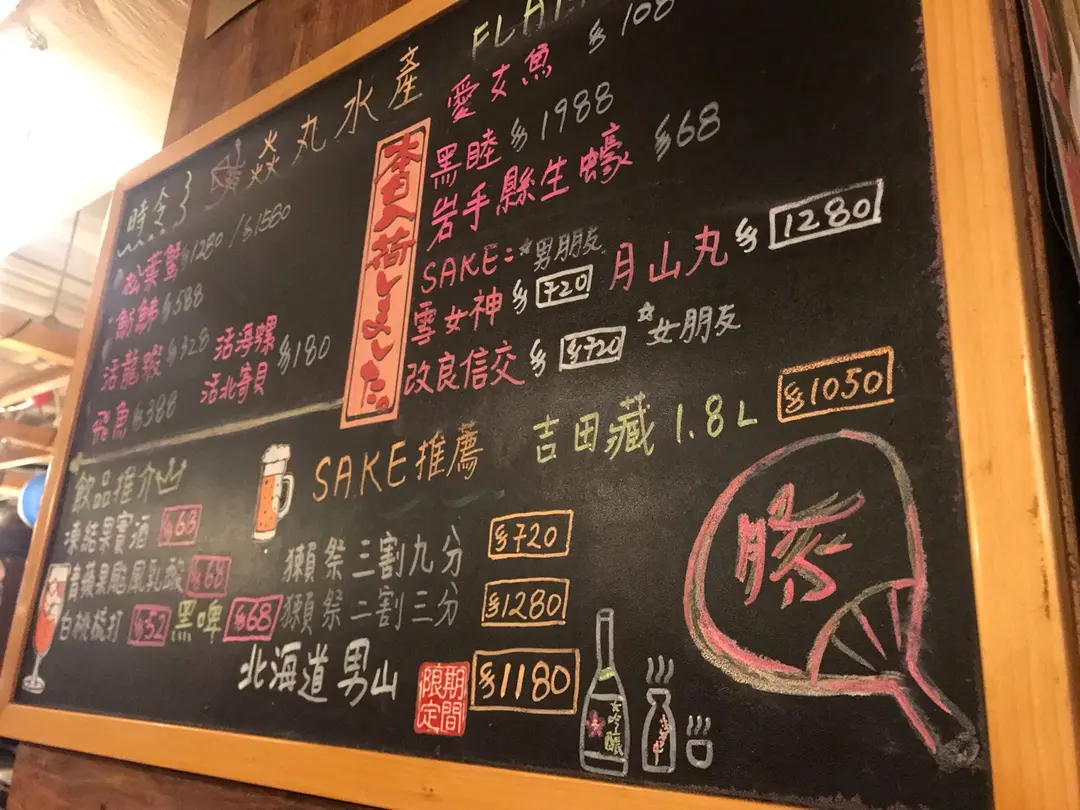 焱丸水產
FLA
時令
松葉蟹 $1280 / $1580
$588
活龍蝦 $328
飛魚 $388
活海螺
活北寄貝 $180
本日入荷しました。
愛女魚 $108
黑睦 $1988
岩手縣生蠔 $68
SAKE: *男朋友
雪女神 $720 月山丸 $1280
改良信交 $720 *女朋友
飲品推介
凍結果實酒 $68
青蘋果颱風乳酸 $68
白桃梳打 $52 黑啤 $68
SAKE推薦 吉田藏 1.8L $1050
獺祭三割九分 $720
獺祭二割三分 $1280
北海道男山 期間限定 $1180
大吟釀
勝